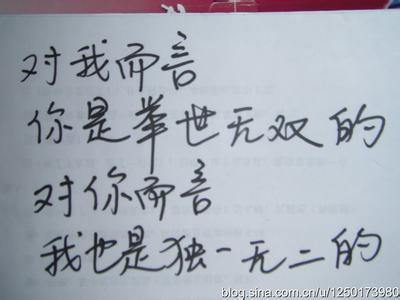 对我而言
你是举世无双的
对你而言
我也是独一无二的
blog.sina.com.cn/u/1250173980